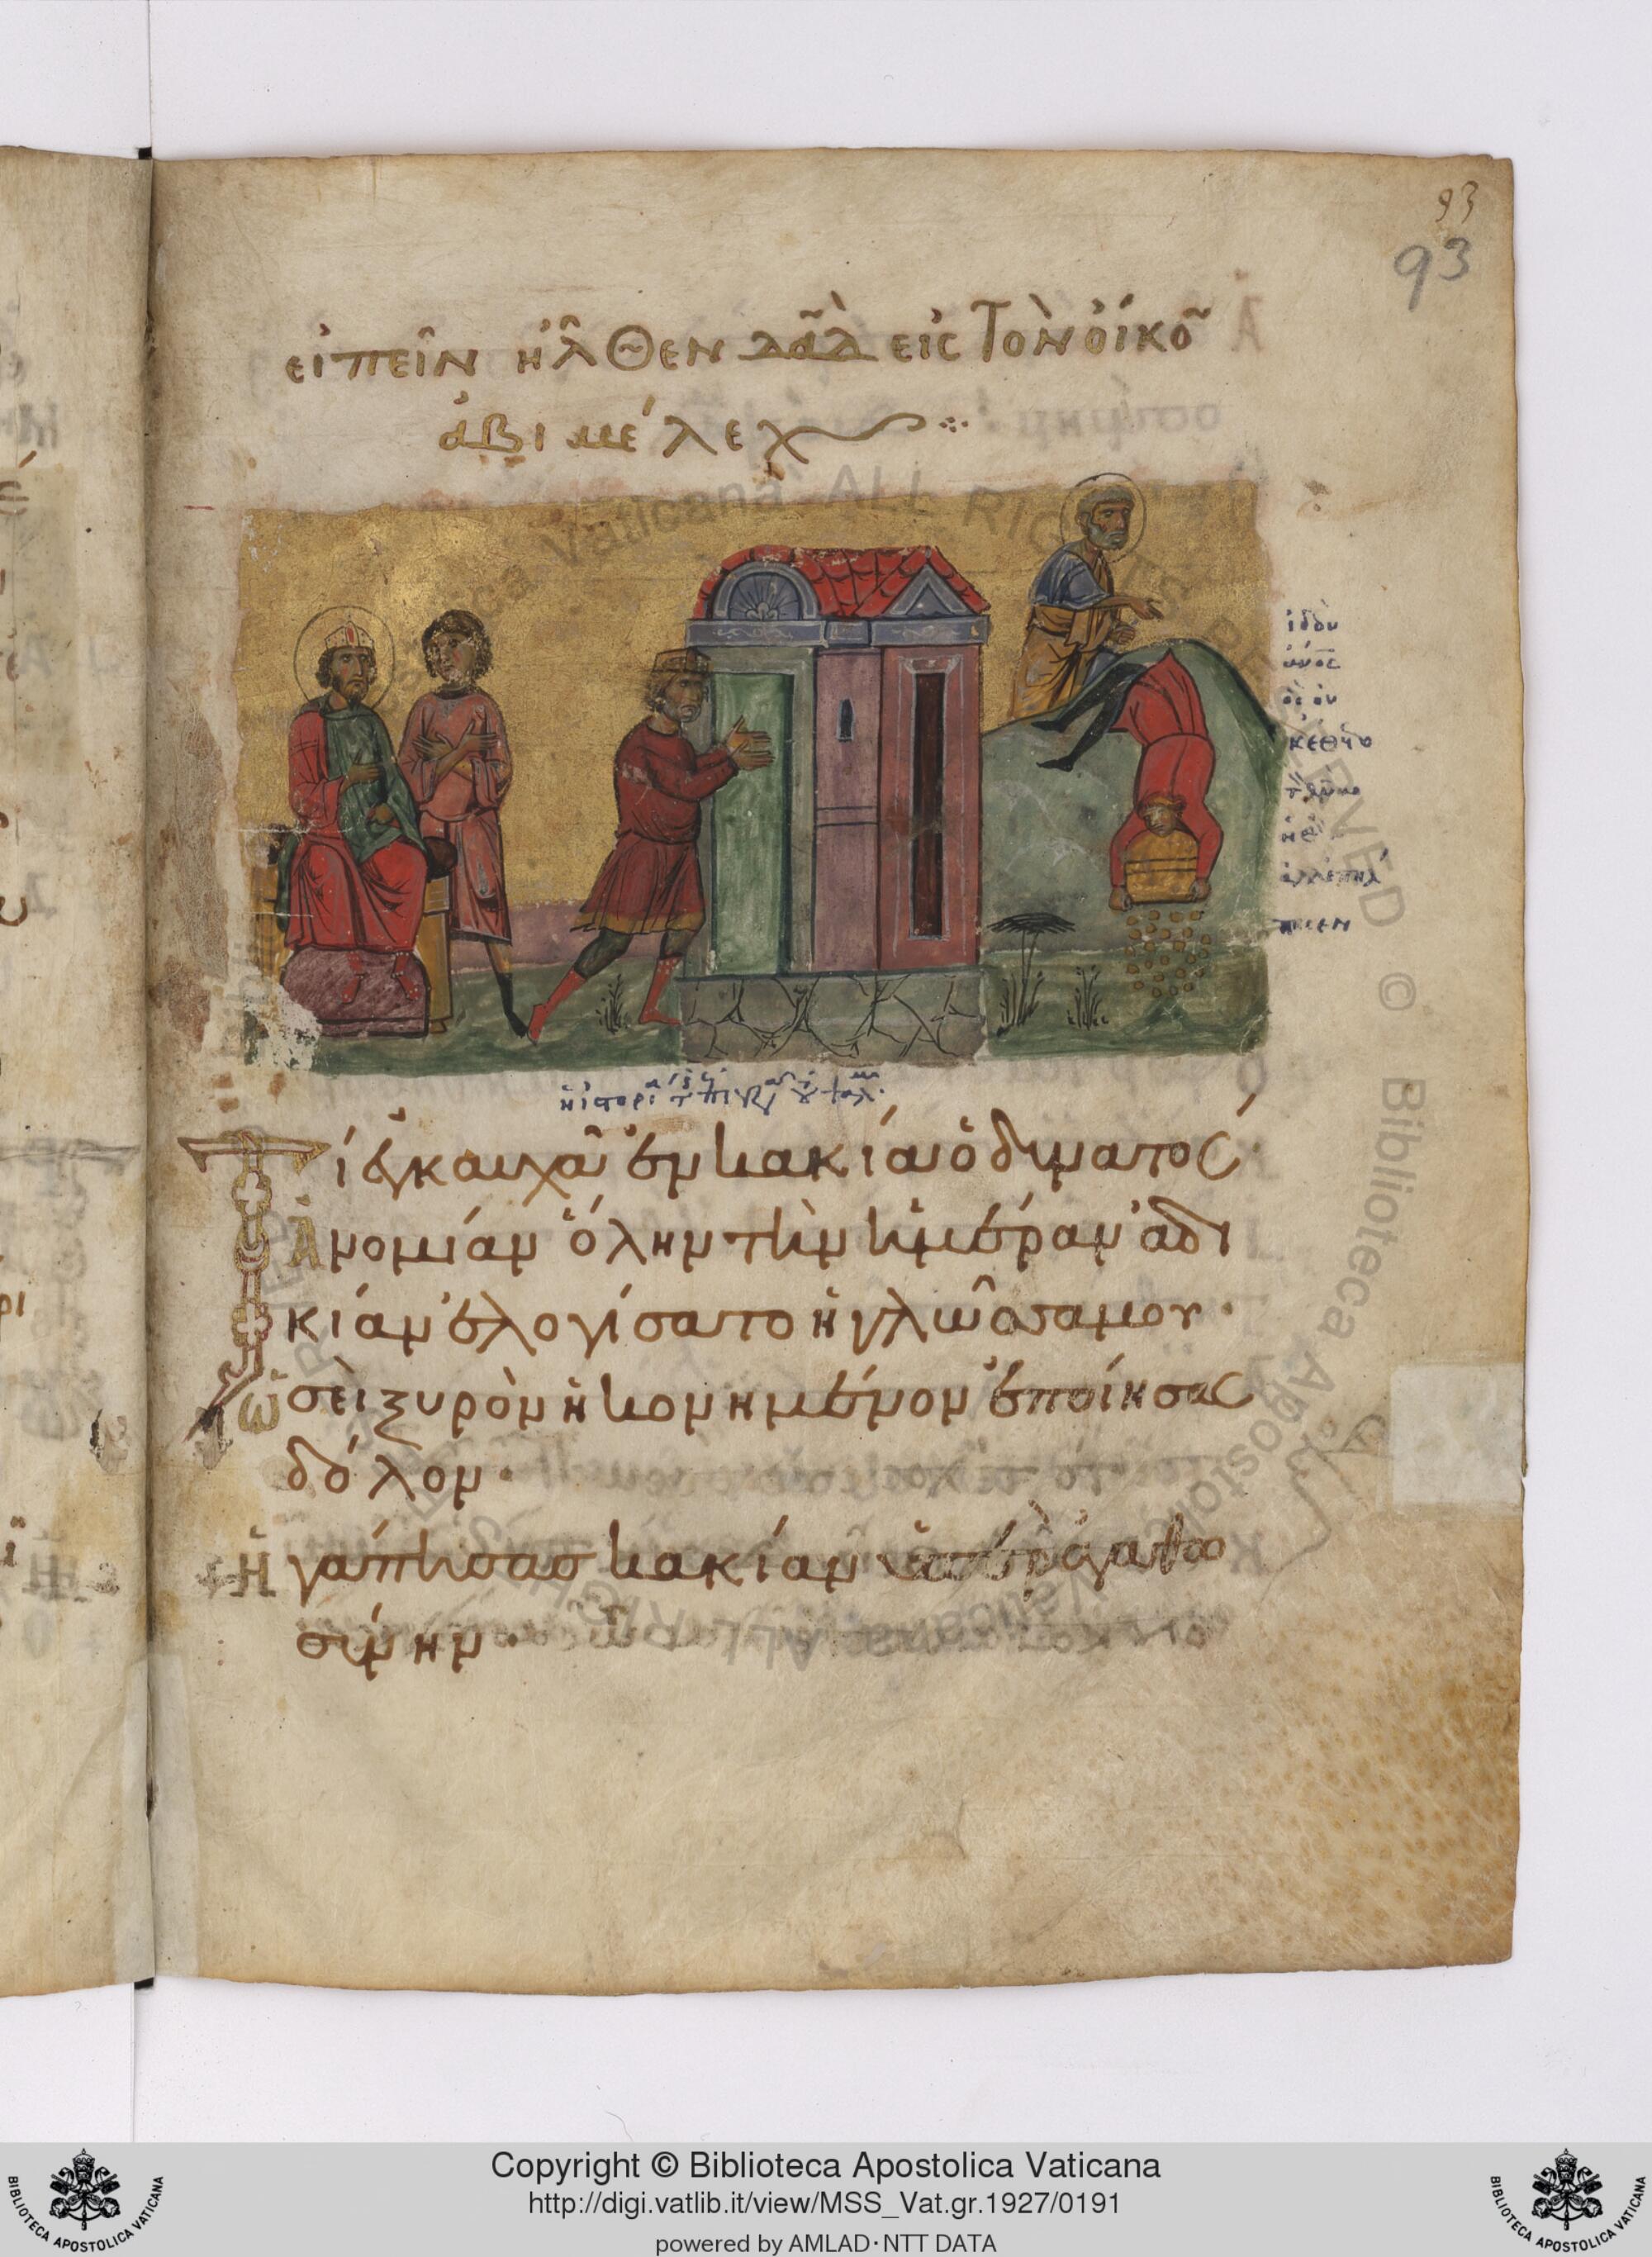 93
93
εἰπεῖν ἦλθεν δᾱδ εἰς τὸν οἶκο
ἀβιμέλεχ
ἰδοὺ
ἄνος
ὃς οὐ
κ ἔθετο
Τί ἐγκαυχᾶ ἐν κακία ὁ δυνατός·
Ἀνομίαν ὅλην τὴν ἡμέραν ἀδι
κίαν ἐλογίσατο ἡ γλῶσσα σου·
Ὡσεὶ ξυρὸν ἠκονημένον ἐποίησας
δόλον·
Ἠγάπησας κακίαν ὑπὲρ ἀγαθω
σύνην·
Copyright © Biblioteca Apostolica Vaticana
http://digi.vatlib.it/view/MSS_Vat.gr.1927/0191
powered by AMLAD·NTT DATA
BIBLIOTECA APOSTOLICA VATICANA
BIBLIOTECA APOSTOLICA VATICANA